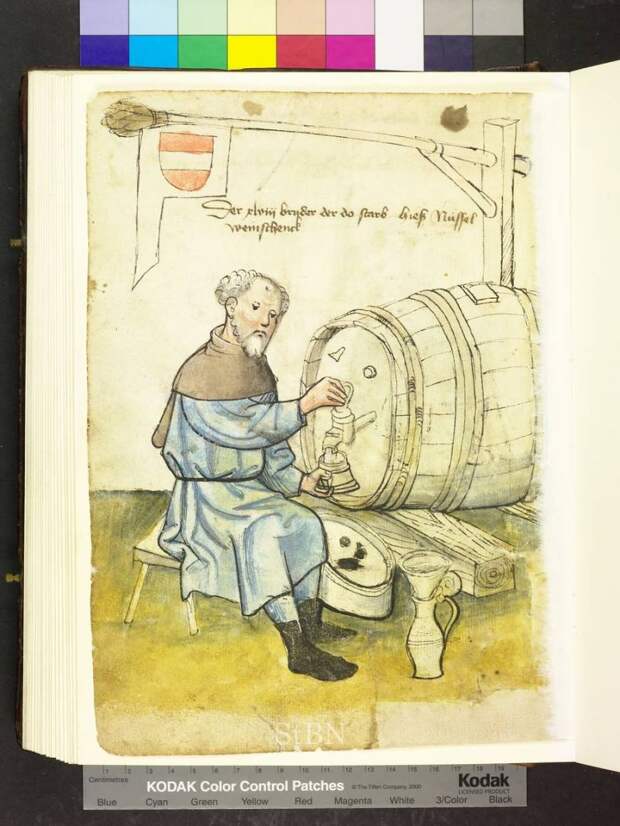 Der xlviij bruder der do starb hieß Nüssel
weinschenck
StBN
1 2 3 4 5 6 7 8 9 10 11 12 13 14 15 16 17 18 19
Centimetres
KODAK Color Control Patches
© The Tiffen Company, 2000
Kodak
LICENSED PRODUCT
Blue Cyan Green Yellow Red Magenta White 3/Color Black